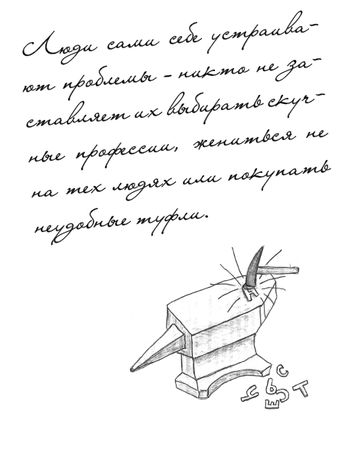 Люди сами себе устраива-
ют проблемы - никто не за-
ставляет их выбирать скуч-
ные профессии, жениться не
на тех людях или покупать
неудобные туфли.
С
Ч Ь С Т
Е